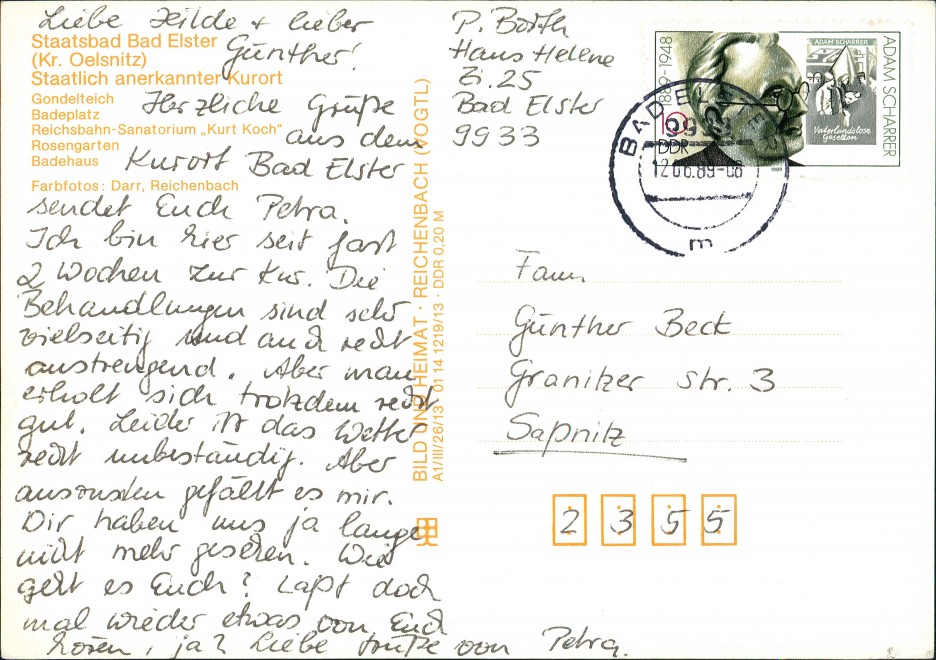 Liebe Hilde + lieber
Günther!
Staatsbad Bad Elster
(Kr. Oelsnitz)
Staatlich anerkannter Kurort
Gondelteich
Badeplatz
Reichsbahn-Sanatorium „Kurt Koch"
Rosengarten
Badehaus
Farbfotos: Darr, Reichenbach
Herzliche Grüße
aus dem
Kurort Bad Elster
sendet Euch Petra.
Ich bin hier seit fast
2 Wochen zur Kur. Die
Behandlungen sind sehr
vielseitig und auch recht
anstrengend. Aber man
erholt sich trotzdem recht
gut. Leider ist das Wetter
recht unbeständig. Aber
ansonsten gefällt es mir.
Wir haben uns ja lange
nicht mehr gesehen. Wie
geht es Euch? Laßt doch
mal wieder etwas von Euch
hören, ja? Liebe Grüße von Petra.
BILD UND HEIMAT · REICHENBACH (VOGTL)
A1/III/26/13 01 14 1219/13 · DDR 0,20 M
P. Barth
Haus Helene
Z. 25
Bad Elster
9933
1889-1948
ADAM SCHARRER
ADAM SCHARRER
Vaterlandslose
Gesellen
10
DDR
1989
BAD ELSTER
9933
12.06.89-08
m
Fam.
Günther Beck
Granitzer Str. 3
Saßnitz
2355